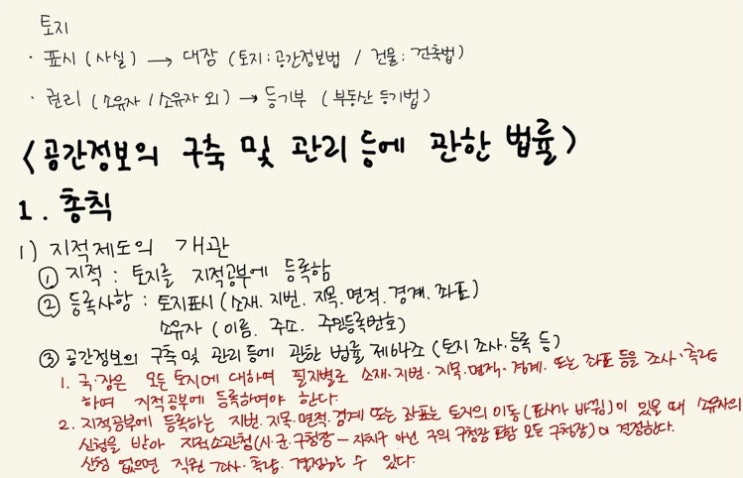 토지
· 표시 (사실) → 대장 (토지 : 공간정보법 / 건물 : 건축법)
· 권리 (소유자 / 소유자 외) → 등기부 (부동산 등기법)
<공간정보의 구축 및 관리 등에 관한 법률>
1. 총칙
1) 지적제도의 개관
① 지적 : 토지를 지적공부에 등록함
② 등록사항 : 토지표시 (소재. 지번. 지목. 면적. 경계. 좌표)
소유자 (이름. 주소. 주민등록번호)
③ 공간정보의 구축 및 관리 등에 관한 법률 제64조 (토지 조사·등록 등)
1. 국·장은 모든 토지에 대하여 필지별로 소재·지번·지목·면적·경계 또는 좌표 등을 조사·측량
하여 지적공부에 등록하여야 한다.
2. 지적공부에 등록하는 지번·지목·면적·경계 또는 좌표는 토지의 이동 (표시가 바뀜) 이 있을 때 소유자의
신청을 받아 지적소관청 (시·군·구청장 – 자치구 아닌 구의 구청장 포함 모든 구청장) 이 결정한다.
신청 없으면 직권 조사·측량·결정할 수 있다.